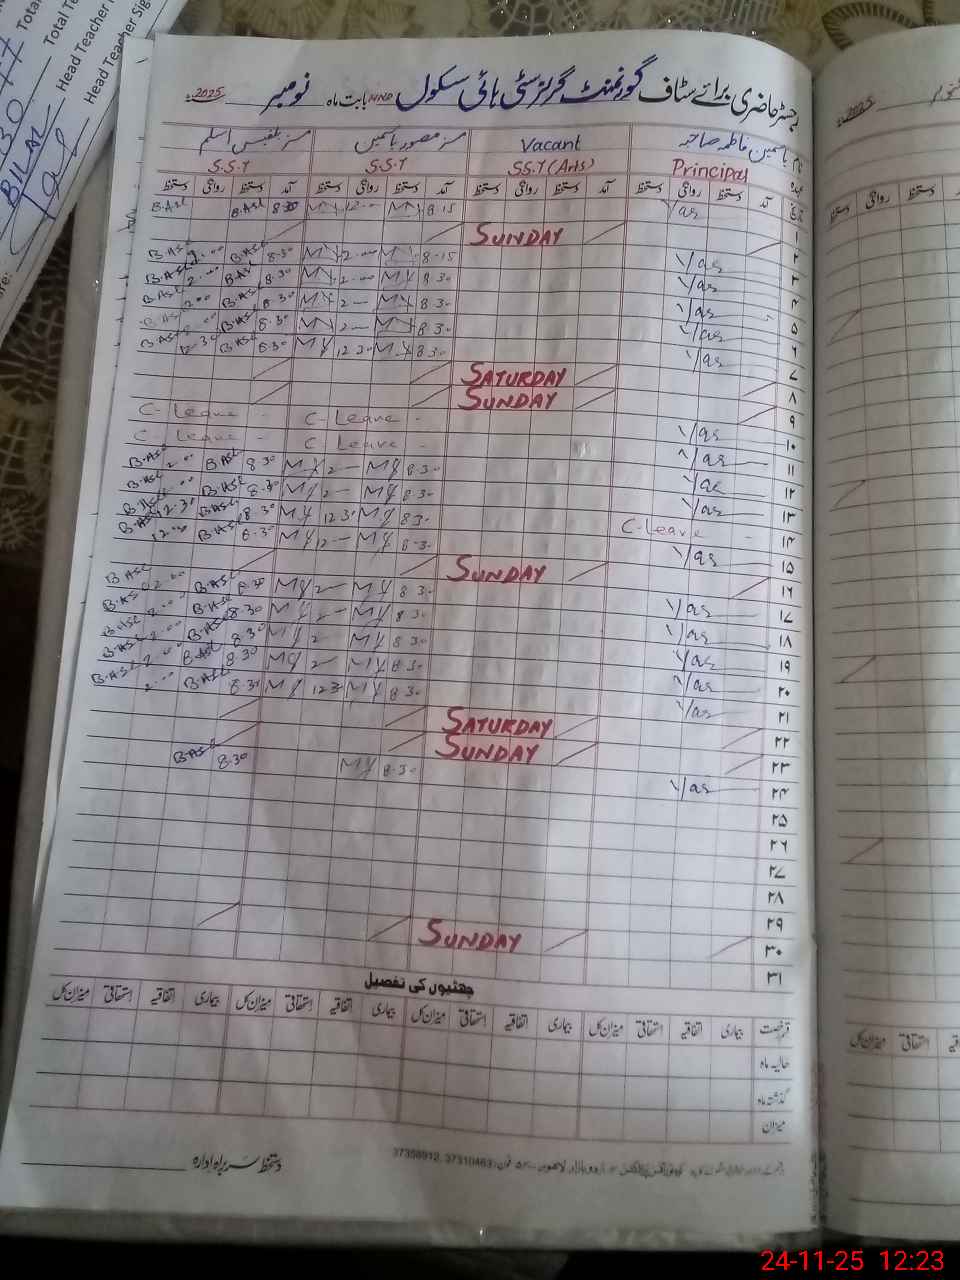 Total
Total Te
Head Teacher
Head Teacher Sig
BILAL
رجسٹر حاضری برائے سٹاف گورنمنٹ گرلز سٹی ہائی سکول NND بابت ماہ نومبر 2025ء
نام یاسمین فاطمہ صاحبہ Vacant مسز منصور یاسمین مسز بلقیس اسلم
عہدہ Principal SS.T (Arts) S.S.T S.S.T
تاریخ آمد دستخط روانگی دستخط آمد دستخط روانگی دستخط آمد دستخط روانگی دستخط آمد دستخط روانگی دستخط
۱ Yas 8.15 MY 12.00 MY 8.30 B.ASL B.ASL
۲ SUNDAY
۳ Yas 8.15 MY 2.00 MY 8.30 B.ASL 2.00 B.ASL
۴ Yas 8.30 MY 2.00 MY 8.30 B.ASL 2.00 B.ASL
۵ Yas 8.30 MY 2— MY 8.30 B.ASL 2.00 B.ASL
۶ Yas 8.30 MY 2— MY 8.30 B.ASL 2.00 B.ASL
۷ Yas 8.30 MY 12.30 MY 8.30 B.ASL 12.30 B.ASL
۸ SATURDAY
۹ SUNDAY
۱۰ Yas C-Leave - C-Leave -
۱۱ Yas C Leave - C-Leave -
۱۲ Yas 8.30 MY 2— MY 8.30 B.ASL 2.00 B.ASL
۱۳ Yas 8.30 MY 2— MY 8.30 B.ASL 2.00 B.ASL
۱۴ C-Leave - 8.30 MY 12.30 MY 8.30 B.ASL 12.30 B.ASL
۱۵ Yas 8.30 MY 12— MY 8.30 B.ASL 12.00 B.ASL
۱۶ SUNDAY
۱۷ Yas 8.30 MY 2— MY 8.30 B.ASL 2.00 B.ASL
۱۸ Yas 8.30 MY 2— MY 8.30 B.ASL 2.00 B.ASL
۱۹ Yas 8.30 MY 2— MY 8.30 B.ASL 2.00 B.ASL
۲۰ Yas 8.30 MY 2— MY 8.30 B.ASL 2.00 B.ASL
۲۱ Yas 8.30 MY 12.30 MY 8.30 B.ASL 2.00 B.ASL
۲۲ SATURDAY
۲۳ SUNDAY
۲۴ Yas 8.30 MY 8.30 B.ASL
۲۵
۲۶
۲۷
۲۸
۲۹
۳۰ SUNDAY
۳۱
چھٹیوں کی تفصیل
قسم رخصت بیماری اتفاقیہ استحقاقی میزان کل بیماری اتفاقیہ استحقاقی میزان کل بیماری اتفاقیہ استحقاقی میزان کل بیماری اتفاقیہ استحقاقی میزان کل
حالیہ ماہ
گذشتہ ماہ
میزان
اردو بازار لاہور فون: 37310463, 37358912
دستخط سربراہ ادارہ
2025ء
دستخط روانگی دستخط
استحقاقی میزان کل
24-11-25 12:23